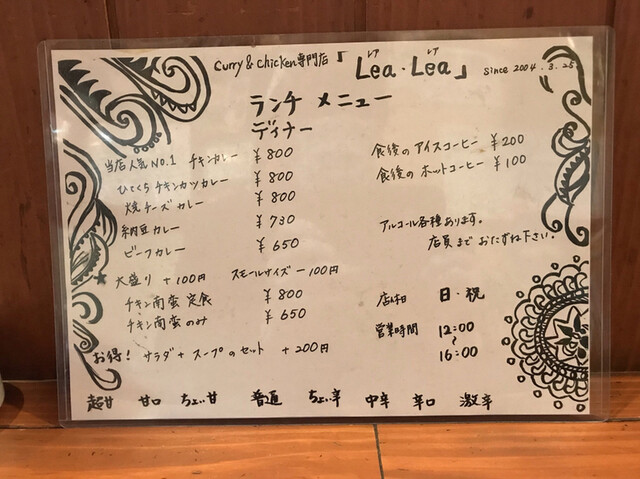 curry & chicken専門店「Lea・Lea」 since 2004.3.25
レア レア
ランチ メニュー
ディナー
当店人気NO.1 チキンカレー ¥800
ひとくちチキンカツカレー ¥800
焼チーズカレー ¥800
納豆カレー ¥730
ビーフカレー ¥650
★大盛り +100円 スモールサイズ -100円
チキン南蛮 定食 ¥800
チキン南蛮のみ ¥650
お得! サラダ+スープのセット +200円
食後のアイスコーヒー ¥200
食後のホットコーヒー ¥100
アルコール各種あります。
店員までおたずね下さい。
店休日 日・祝
営業時間 12:00
~
16:00
超甘 甘口 ちょい甘 普通 ちょい辛 中辛 辛口 激辛